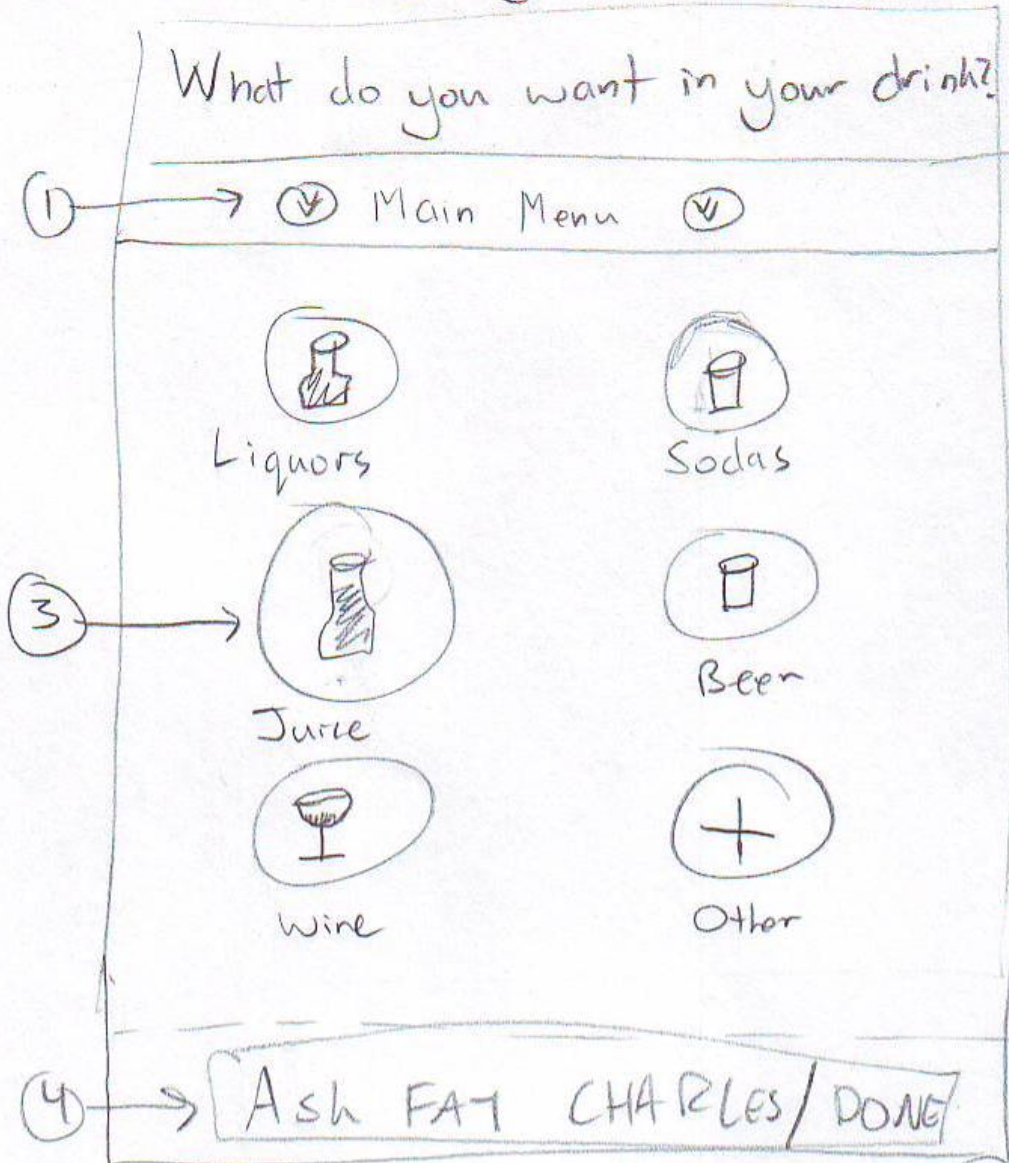 What do you want in your drink?
1 Main Menu
Liquors Sodas
3
Juice Beer
Wine Other
4 Ask FAT CHARLES/DONE